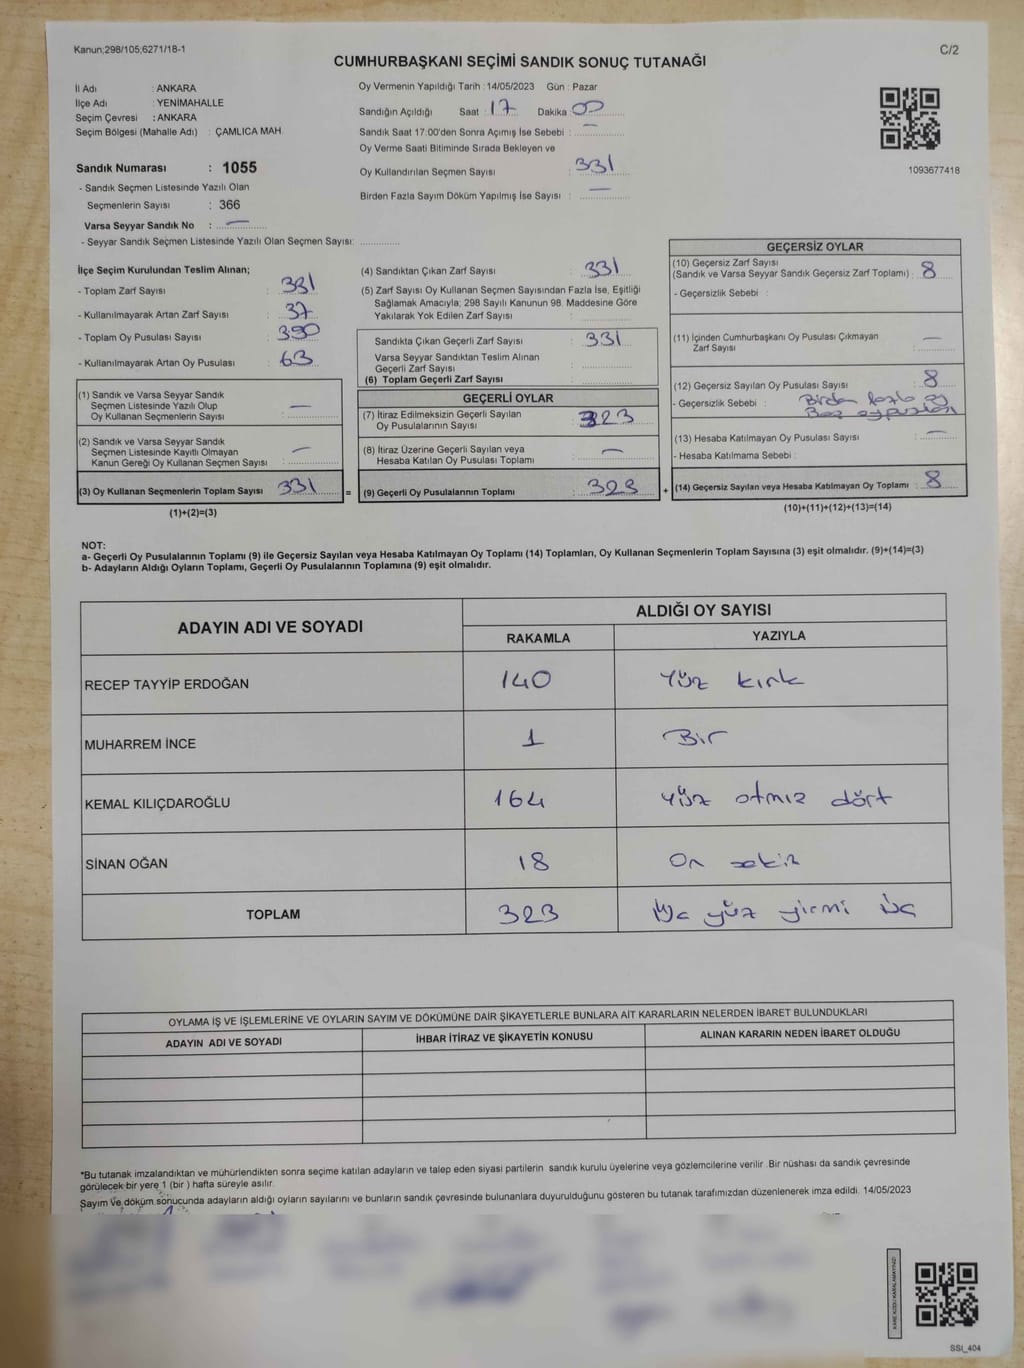 Kanun;298/105;6271/18-1
C/2
CUMHURBAŞKANI SEÇİMİ SANDIK SONUÇ TUTANAĞI
İl Adı : ANKARA
İlçe Adı : YENİMAHALLE
Seçim Çevresi : ANKARA
Seçim Bölgesi (Mahalle Adı) : ÇAMLICA MAH.
Sandık Numarası : 1055
- Sandık Seçmen Listesinde Yazılı Olan
Seçmenlerin Sayısı : 366
Varsa Seyyar Sandık No : —
- Seyyar Sandık Seçmen Listesinde Yazılı Olan Seçmen Sayısı:
Oy Vermenin Yapıldığı Tarih : 14/05/2023 Gün : Pazar
Sandığın Açıldığı Saat : 17 Dakika : 00
Sandık Saat 17:00'den Sonra Açımış İse Sebebi : —
Oy Verme Saati Bitiminde Sırada Bekleyen ve
Oy Kullandırılan Seçmen Sayısı : 331
Birden Fazla Sayım Döküm Yapılmış İse Sayısı : —
1093677418
İlçe Seçim Kurulundan Teslim Alınan;
- Toplam Zarf Sayısı : 381
- Kullanılmayarak Artan Zarf Sayısı : 37
- Toplam Oy Pusulası Sayısı : 390
- Kullanılmayarak Artan Oy Pusulası : 63
(1) Sandık ve Varsa Seyyar Sandık
Seçmen Listesinde Yazılı Olup
Oy Kullanan Seçmenlerin Sayısı : —
(2) Sandık ve Varsa Seyyar Sandık
Seçmen Listesinde Kayıtlı Olmayan
Kanun Gereği Oy Kullanan Seçmen Sayısı : —
(3) Oy Kullanan Seçmenlerin Toplam Sayısı : 331 =
(1)+(2)=(3)
(4) Sandıktan Çıkan Zarf Sayısı : 331
(5) Zarf Sayısı Oy Kullanan Seçmen Sayısından Fazla İse, Eşitliği
Sağlamak Amacıyla; 298 Sayılı Kanunun 98. Maddesine Göre
Yakılarak Yok Edilen Zarf Sayısı :
Sandıkta Çıkan Geçerli Zarf Sayısı : 331
Varsa Seyyar Sandıktan Teslim Alınan
Geçerli Zarf Sayısı :
(6) Toplam Geçerli Zarf Sayısı :
GEÇERLİ OYLAR
(7) İtiraz Edilmeksizin Geçerli Sayılan
Oy Pusulalarının Sayısı : 323
(8) İtiraz Üzerine Geçerli Sayılan veya
Hesaba Katılan Oy Pusulası Toplamı : —
(9) Geçerli Oy Pusulalarının Toplamı : 323 +
GEÇERSİZ OYLAR
(10) Geçersiz Zarf Sayısı
(Sandık ve Varsa Seyyar Sandık Geçersiz Zarf Toplamı) : 8
- Geçersizlik Sebebi :
(11) İçinden Cumhurbaşkanı Oy Pusulası Çıkmayan
Zarf Sayısı : —
(12) Geçersiz Sayılan Oy Pusulası Sayısı : 8
- Geçersizlik Sebebi : Birden fazla oy
Boş oy pusulası
(13) Hesaba Katılmayan Oy Pusulası Sayısı : —
- Hesaba Katılmama Sebebi :
(14) Geçersiz Sayılan veya Hesaba Katılmayan Oy Toplamı : 8
(10)+(11)+(12)+(13)=(14)
NOT:
a- Geçerli Oy Pusulalarının Toplamı (9) ile Geçersiz Sayılan veya Hesaba Katılmayan Oy Toplamı (14) Toplamları, Oy Kullanan Seçmenlerin Toplam Sayısına (3) eşit olmalıdır. (9)+(14)=(3)
b- Adayların Aldığı Oyların Toplamı, Geçerli Oy Pusulalarının Toplamına (9) eşit olmalıdır.
ADAYIN ADI VE SOYADI ALDIĞI OY SAYISI
RAKAMLA YAZIYLA
RECEP TAYYİP ERDOĞAN 140 Yüz kırk
MUHARREM İNCE 1 Bir
KEMAL KILIÇDAROĞLU 164 Yüz atmış dört
SİNAN OĞAN 18 On sekiz
TOPLAM 323 Üç yüz yirmi üç
OYLAMA İŞ VE İŞLEMLERİNE VE OYLARIN SAYIM VE DÖKÜMÜNE DAİR ŞİKAYETLERLE BUNLARA AİT KARARLARIN NELERDEN İBARET BULUNDUKLARI
ADAYIN ADI VE SOYADI İHBAR İTİRAZ VE ŞİKAYETİN KONUSU ALINAN KARARIN NEDEN İBARET OLDUĞU
*Bu tutanak imzalandıktan ve mühürlendikten sonra seçime katılan adayların ve talep eden siyasi partilerin sandık kurulu üyelerine veya gözlemcilerine verilir .Bir nüshası da sandık çevresinde
görülecek bir yere 1 (bir ) hafta süreyle asılır.
Sayım ve döküm sonucunda adayların aldığı oyların sayılarını ve bunların sandık çevresinde bulunanlara duyurulduğunu gösteren bu tutanak tarafımızdan düzenlenerek imza edildi. 14/05/2023
KARE KODU KARALAMAYINIZ!
SSI_404